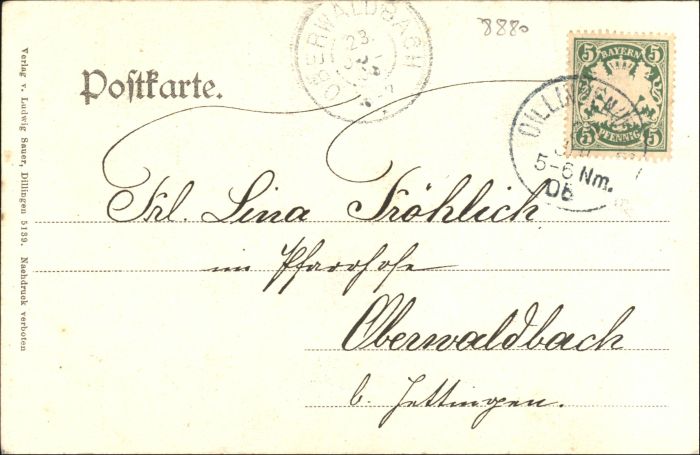 8880
OBERWALDBACH
23.
5 BAYERN 5
5 PFENNIG 5
Postkarte.
DILLINGEN
5-6 Nm.
06
Frl. Lina Fröhlich
im Pfarrhofe
Oberwaldbach
b. Jettingen.
Verlag v. Ludwig Sauer, Dillingen 5139. Nachdruck verboten